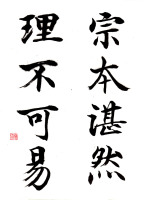 宗本諶然
理不可易